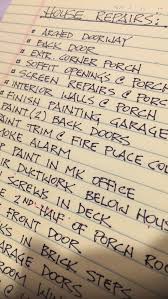 HOUSE REPAIRS:
* ARCHED DOORWAY
* BACK DOOR
* EXTR. CORNER PORCH
* SOFFIT OPENINGS @ PORCH
* SCREEN REPAIRS @ PORCH
* INTERIOR WALLS @ PORCH
* FINISH PAINTING GARAGE
PAINT (2) BACK DOORS
PAINT TRIM @ FIRE PLACE
MOKE ALARM
PAINT IN MK OFFICE
DUCTWORK BELOW HOUS
SCREWS IN DECK
2ND HALF OF PORCH RO
FRONT DOOR
IN BRICK STEPS
GARAGE DOORS